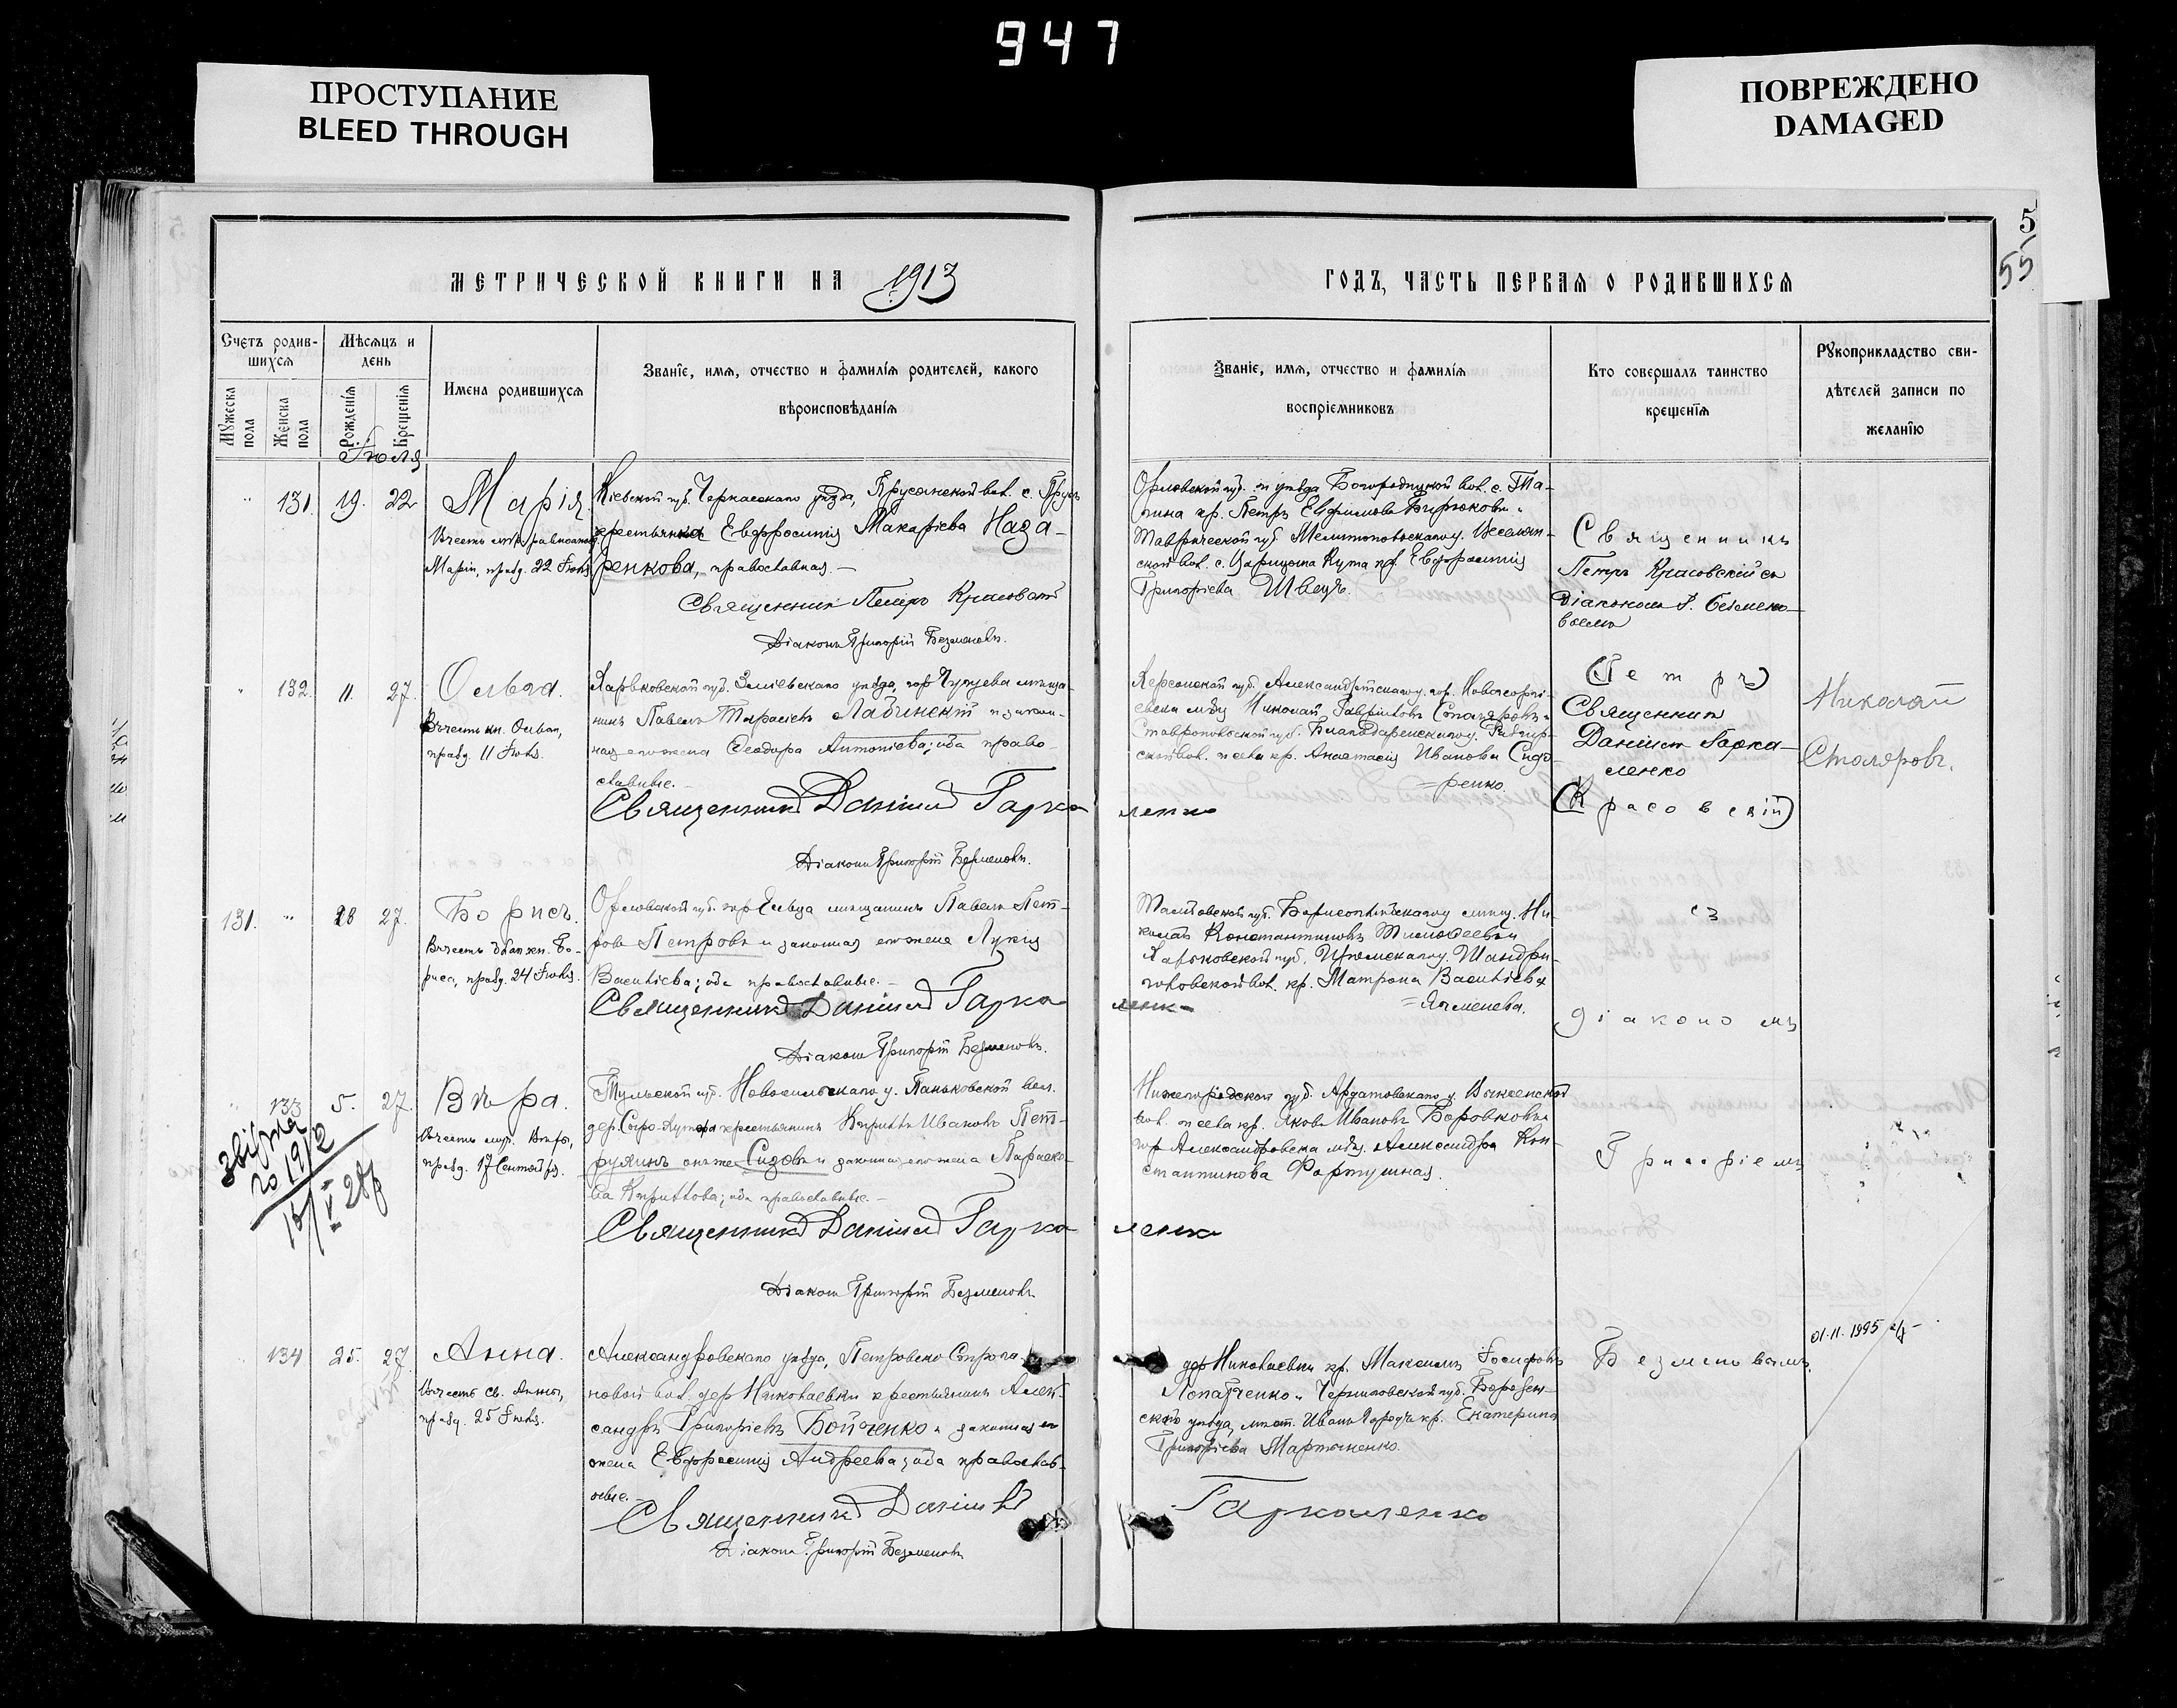 947
ПРОСТУПАНИЕ
BLEED THROUGH
ПОВРЕЖДЕНО
DAMAGED
5
55
МЕТРИЧЕСКОЙ КНИГИ НА 1913
ГОДЪ, ЧАСТЬ ПЕРВАЯ О РОДИВШИХСЯ
Счетъ родив-
шихся
Мужеска пола
Женска пола
Мѣсяцъ и
день
Рожденія
Крещенія
Имена родившихся
Званіе, имя, отчество и фамилія родителей, какого
вѣроисповѣданія
Званіе, имя, отчество и фамилія
воспріемниковъ
Кто совершалъ таинство
крещенія
Рукоприкладство сви-
дѣтелей записи по
желанію
Іюля
131. 19. 22 Марія.
Марія, празд. 22 Іюля.
Кіевской губ. Черкасскаго уѣзда, Прусянской вол. с. Прусъ
крестьянка Евфросинія Макаріева Наза-
ренкова, православная. —
Священникъ Петръ Красовскій
Діаконъ Григорій Безменовъ.
Орловской губ. и уѣзда Богородицкой вол. с. Та-
гина кр. Петръ Евфимовъ Бирюковъ и
Таврической губ. Мелитопольскаго у. Веселян-
ской вол. с. Царицына Кута кр. Евфросинія
Григоріева Швецъ.
Священникъ
Петръ Красовскій съ
діакономъ Г. Безмено-
вымъ
132. 11. 27. Ольга.
Въ честь кн. Ольги,
празд. 11 Іюля.
Харьковской губ. Зміевскаго уѣзда, гор. Чугуева мѣща-
нинъ Павелъ Тарасіевъ Лабинскій и закон-
ная его жена Ѳеодора Антоніева; оба право-
славные.
Священникъ Даніилъ Гарка
ленко
Діаконъ Григорій Безменовъ.
Херсонской губ. Александрійскаго у. гор. Новогеоргі-
евска мѣщ. Николай Гавріиловъ Столяровъ и
Ставропольской губ. Благодаренскаго у.
ской вол. и села кр. Анастасія Иванова Сидо-
=ренко.
(Петръ)
Священникъ
Даніилъ Гарка-
ленко
(Красовскій)
Николай
Столяровъ.
131. 18 27. Борисъ.
Въ честь кн. Бо-
риса, празд. 24 Іюля.
Орловской губ. гор. Ельца мѣщанинъ Павелъ Пет-
ровъ Петровъ и законная его жена Лукія
Васильева; оба православные. —
Священникъ Даніилъ Гарка
ленко
Діаконъ Григорій Безменовъ.
Тамбовской губ. Борисоглѣбскаго у. мѣщ. Ни-
колай Константиновъ Тимоѳеевъ и
Харьковской губ. Изюмскаго у. Шандри-
головской вол. кр. Матрона Васильева
=Ячменева.
съ
діакономъ
133 5. 27. Вѣра.
Въ честь муч. Вѣры,
празд. 17 Сентября.
Тульской губ. Новосильскаго у. Паньковской вол.
дер. Сыро-Хутора крестьянинъ Кириллъ Ивановъ Пет-
рухинъ онъ-же Сизовъ и законная его жена Параске-
ва Кириллова; оба православные. —
Священникъ Даніилъ Гарка
ленко
Діаконъ Григорій Безменовъ
Нижегородской губ. Ардатовскаго у.
вол. и села кр. Яковъ Ивановъ Боровковъ и
гор. Александровска мѣщ. Александра Кон-
стантинова Фортушная.
Григоріемъ
134 25. 27. Анна.
Въ честь св. Анны,
празд. 25 Іюля.
Александровскаго уѣзда, Петровско
новой вол. дер. Николаевки крестьянинъ Алек-
сандръ Григорьевъ Бойченко и законная его
жена Евфросинія Андреева; оба православ-
ные. —
Священникъ Даніилъ
Гаркаленко
Діаконъ Григорій Безменовъ
дер. Николаевки кр. Максимъ Іосифовъ
Лопатченко и Черниговской губ. Борзен-
скаго уѣзда, мѣст. Ивангородъ кр. Екатерина
Григоріева Мартыненко.
Безменовымъ.
01.11.1995